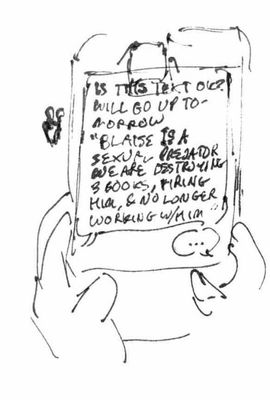 IS THIS TEXT OK?
WILL GO UP TO-
MORROW
"BLAISE IS A
SEXUAL PREDATOR
WE ARE DESTROYING
3 BOOKS, FIRING
HIM, & NO LONGER
WORKING W/HIM"
...